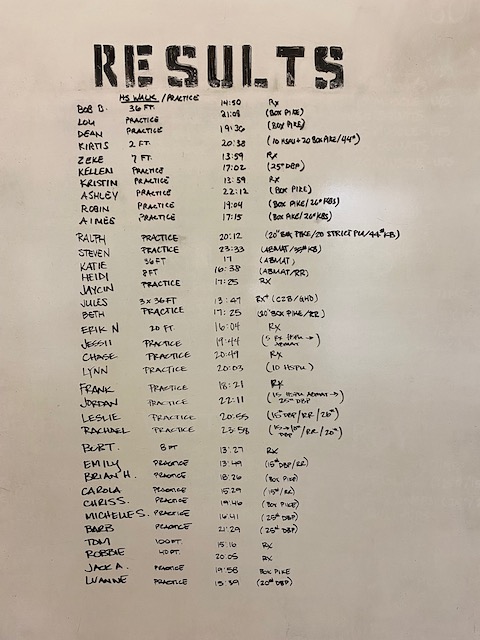 RESULTS
HS WALK / PRACTICE
BOB B. 36 FT. 14:50 Rx
LOU PRACTICE 21:08 (BOX PIKE)
DEAN PRACTICE 19:36 (BOX PIKE)
KIRTIS 2 FT. 20:38 (10 HSPU + 20 BOX PIKE / 44#)
ZEKE 7 FT. 13:59 Rx
KELLEN PRACTICE 17:02 (25# DBP)
KRISTIN PRACTICE 13:59 Rx
ASHLEY PRACTICE 22:12 (BOX PIKE)
ROBIN PRACTICE 19:04 (BOX PIKE / 26# KBS)
AIMEE PRACTICE 17:15 (BOX PIKE / 26# KBS)
RALPH PRACTICE 20:12 (20" BOX PIKE / 20 STRICT PU / 44# KB)
STEVEN PRACTICE 23:33 (ABMAT / 35# KB)
KATIE 36 FT 17 (ABMAT)
HEIDI 8 FT 16:38 (ABMAT/RR)
JAYCIN PRACTICE 17:25 Rx
JULES 3 x 36 FT 13:47 Rx+ (C2B/GHD)
BETH PRACTICE 17:25 (20" BOX PIKE / RR)
ERIK N 20 FT. 16:04 Rx
JESSII PRACTICE 19:44 (5 Rx HSPU → ABMAT)
CHASE PRACTICE 20:49 Rx
LYNN PRACTICE 20:03 (10 HSPU)
FRANK PRACTICE 18:21 Rx
JORDAN PRACTICE 22:11 (15 HSPU ABMAT → 25# DBP)
LESLIE PRACTICE 20:55 (15# DBP / RR / 26#)
RACHAEL PRACTICE 23:58 (15→10# DBP / RR / 20#)
BURT 8 FT 13:27 Rx
EMILY PRACTICE 13:49 (15# DBP/RR)
BRIAN H. PRACTICE 18:26 (BOX PIKE)
CAROLA PRACTICE 15:29 (15#/RR)
CHRIS S. PRACTICE 19:46 (BOX PIKE)
MICHELLE S. PRACTICE 16:41 (25# DBP)
BARB PRACTICE 21:29 (25# DBP)
TOM 100 FT. 15:16 Rx
ROBBIE 40 FT. 20:05 Rx
JACK A. PRACTICE 19:58 BOX PIKE
LUANNE PRACTICE 15:39 (20# DBP)